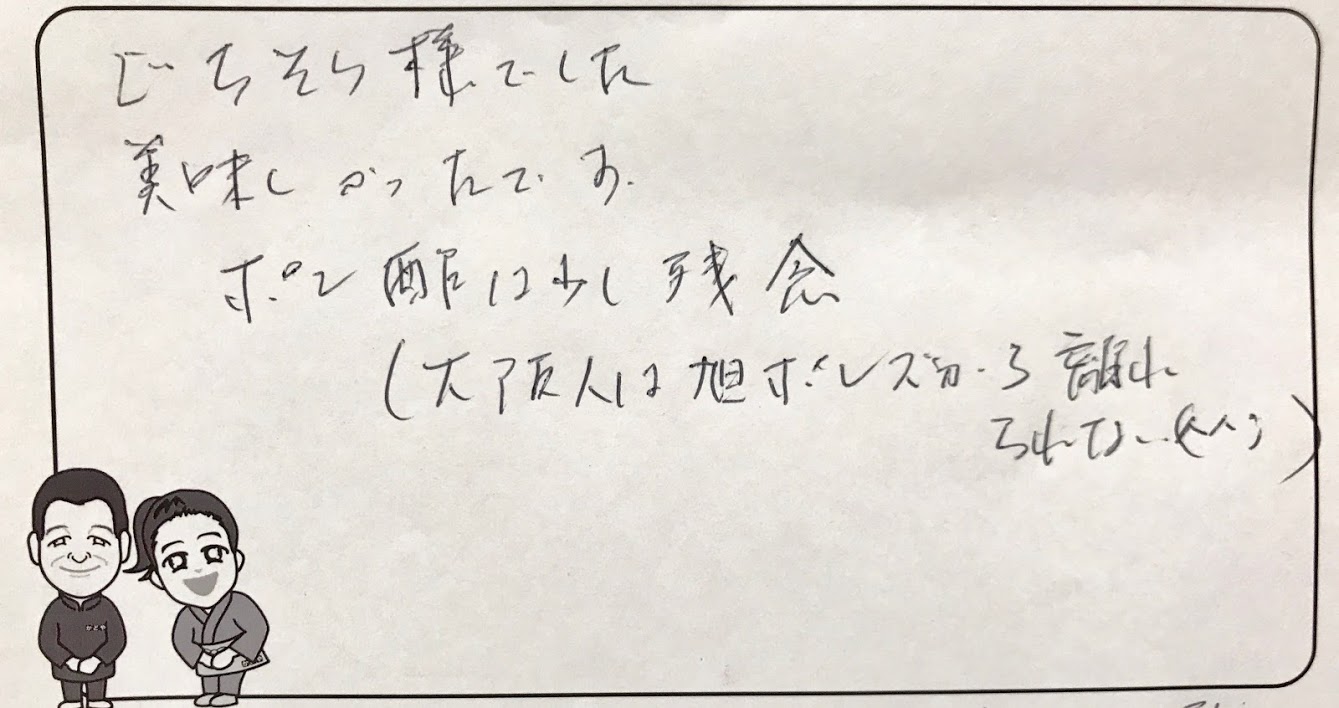 ごちそう様でした
美味しかったです。
ポン酢は少し残念
(大阪人は旭ポンズから離れ
られない(^^;)
かどや